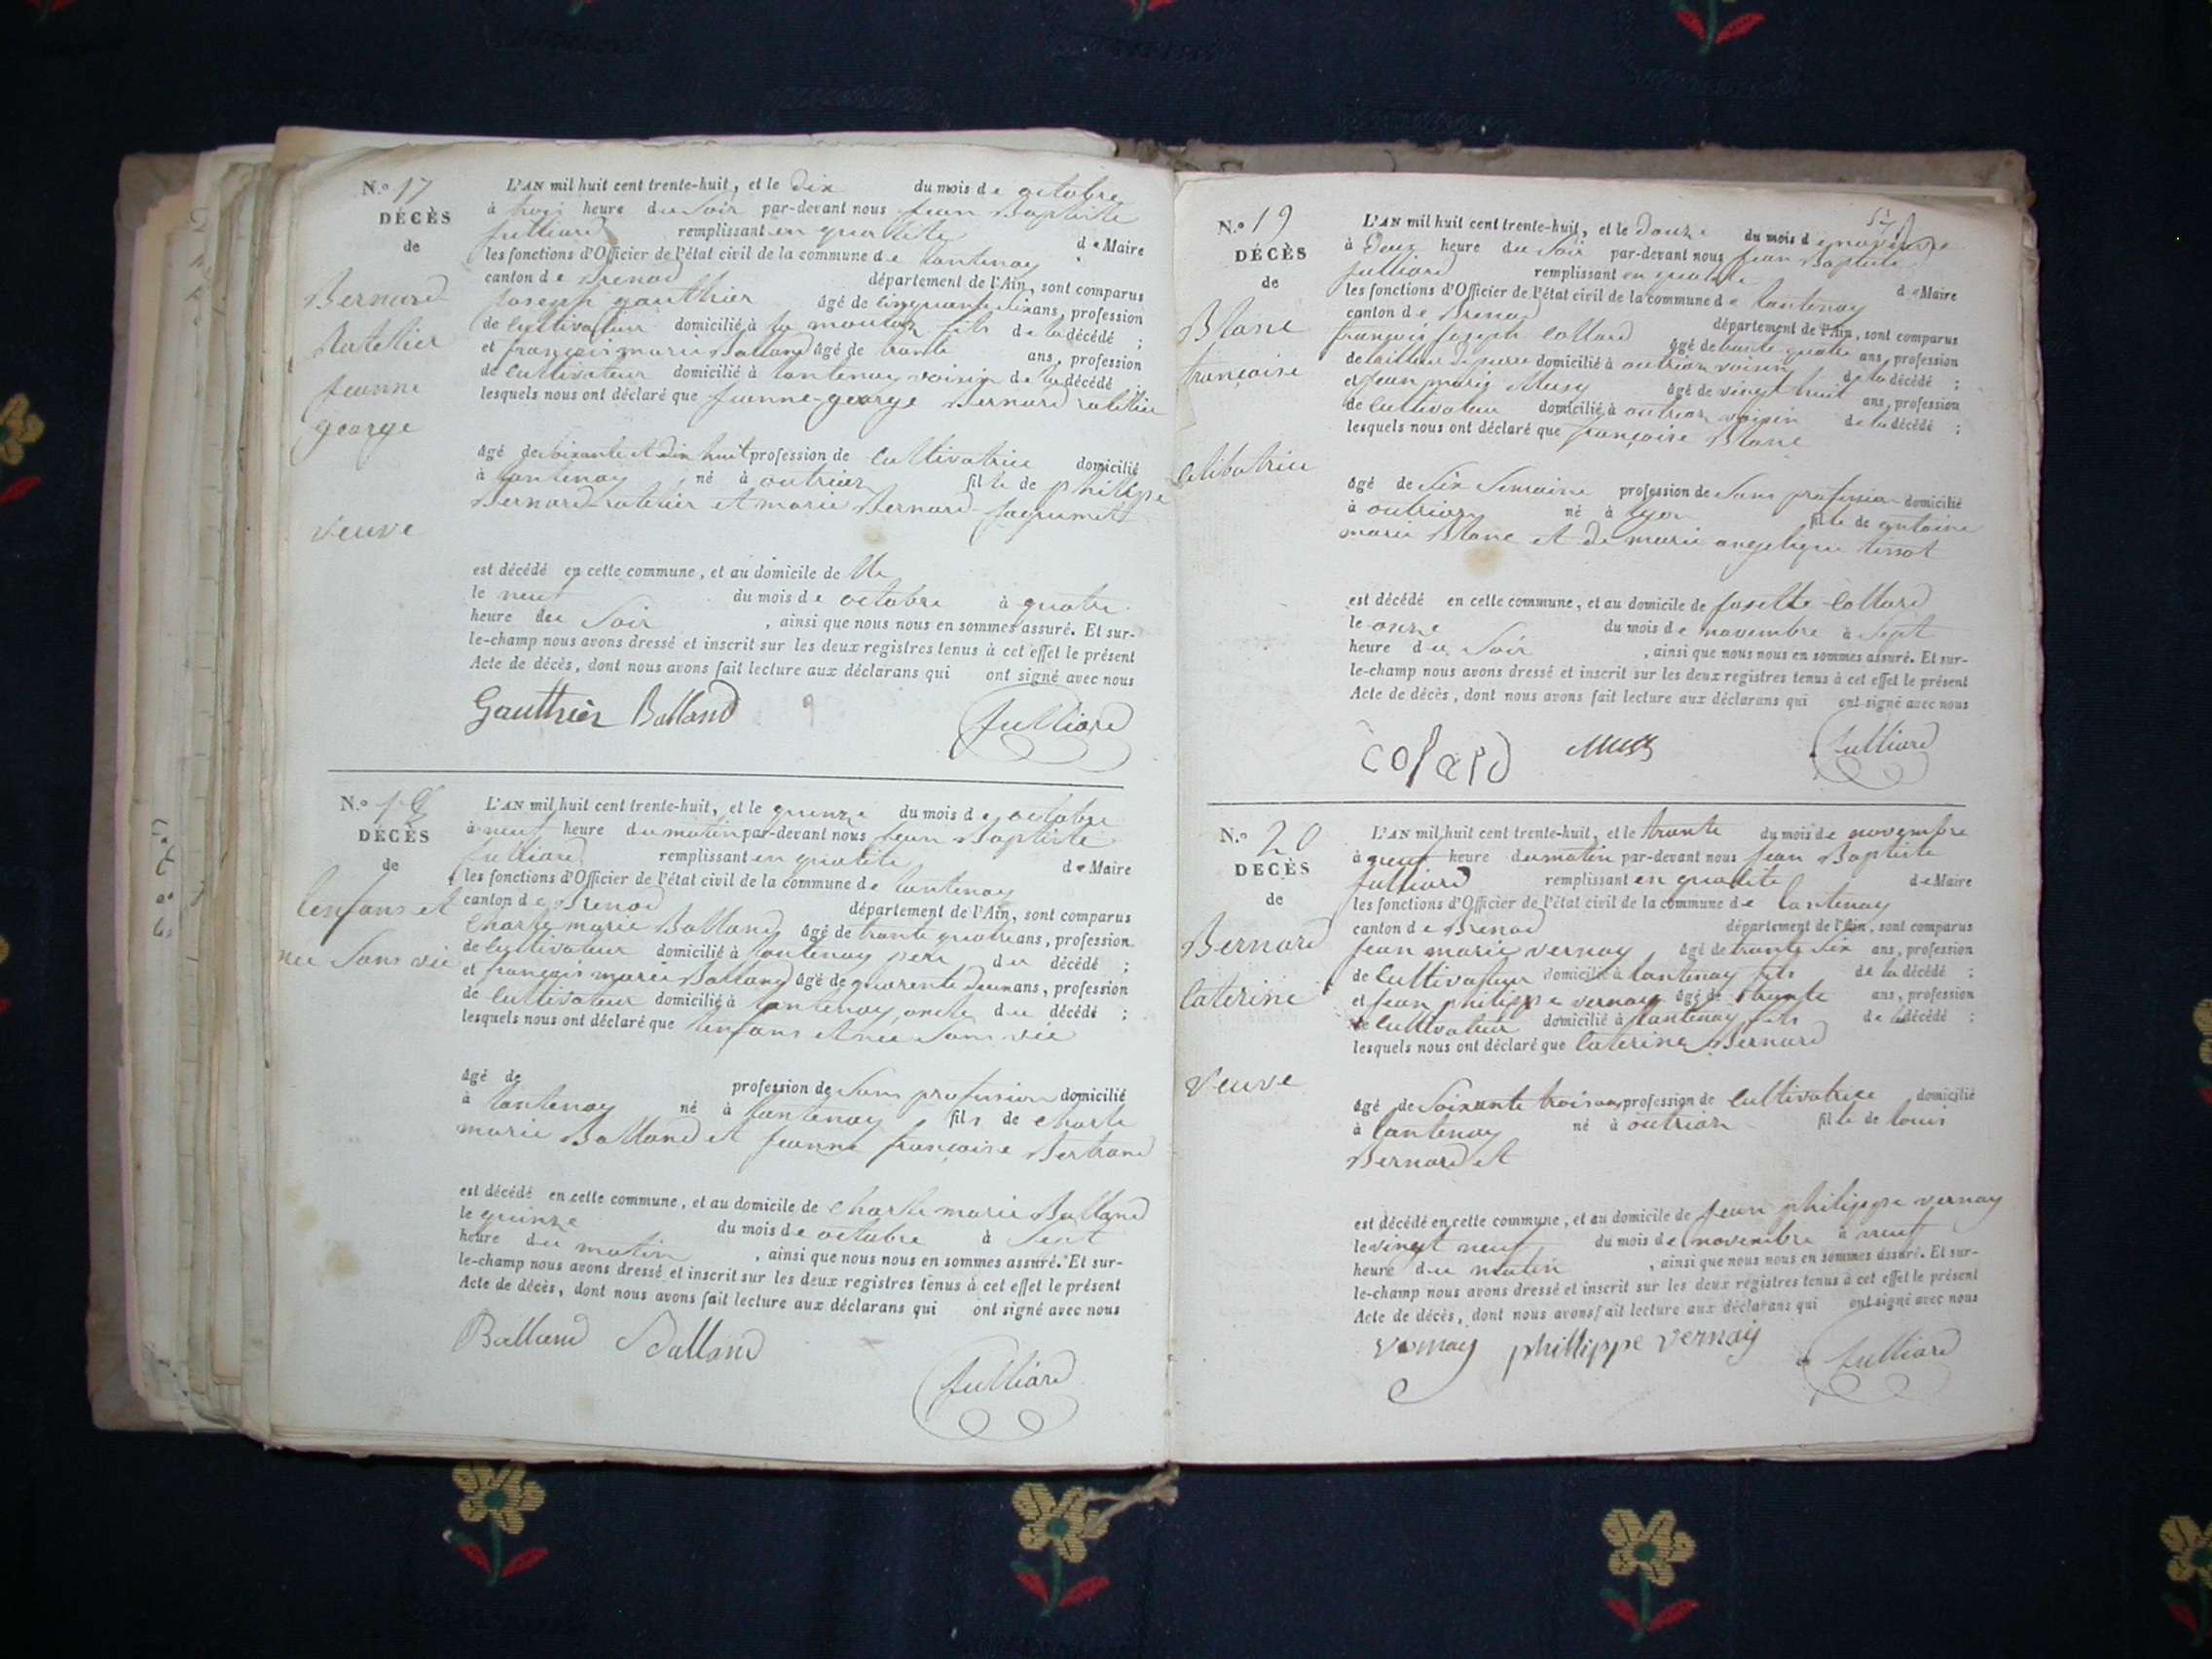 N.º 17
DÉCÈS
de
Bernard
Ratellier
jeanne
george
veuve
L'AN mil huit cent trente-huit, et le dix du mois de octobre
à trois heure du soir par-devant nous jean Baptiste
julliard remplissant en qualité de Maire
les fonctions d'Officier de l'état civil de la commune de lantenay
canton de Brenod département de l'Ain, sont comparus
joseph gauthier âgé de cinquante ans, profession
de cultivateur domicilié à fils de la décédé ;
et françois marie Balland âgé de trante ans, profession
de cultivateur domicilié à lantenay voisin de la décédé
lesquels nous ont déclaré que jeanne-george Bernard ratellier
âgé de soixante et dix huit profession de cultivatrice domicilié
à lantenay né à outriaz fille de philippe
Bernard-ratellier et marie Bernard
est décédé en cette commune, et au domicile de
le neuf du mois de octobre à quatre
heure du soir , ainsi que nous nous en sommes assuré. Et sur-
le-champ nous avons dressé et inscrit sur les deux registres tenus à cet effet le présent
Acte de décès, dont nous avons fait lecture aux déclarans qui ont signé avec nous
Gauthier Balland julliard
N.º 18
DÉCÈS
de
lenfans et
née sans vie
L'AN mil huit cent trente-huit, et le quinze du mois de octobre
à neuf heure du matin par-devant nous jean Baptiste
julliard remplissant en qualité de Maire
les fonctions d'Officier de l'état civil de la commune de lantenay
canton de Brenod département de l'Ain, sont comparus
Charle marie Balland âgé de trante quatre ans, profession
de cultivateur domicilié à lantenay pere du décédé ;
et françois marie Balland âgé de quarente deux ans, profession
de cultivateur domicilié à lantenay oncle du décédé ;
lesquels nous ont déclaré que lenfans et née sans vie
âgé de profession de sans profession domicilié
à lantenay né à lantenay fils de charle
marie Balland et jeanne françoise Bertrand
est décédé en cette commune, et au domicile de charle marie Balland
le quinze du mois de octobre à sept
heure du matin , ainsi que nous nous en sommes assuré. Et sur-
le-champ nous avons dressé et inscrit sur les deux registres tenus à cet effet le présent
Acte de décès, dont nous avons fait lecture aux déclarans qui ont signé avec nous
Balland Balland
julliard
N.º 19
DÉCÈS
de
Blanc
françoise
celibatrice
L'AN mil huit cent trente-huit, et le douze du mois de novembre
à deux heure du soir par-devant nous jean Baptiste
julliard remplissant en qualité de Maire
les fonctions d'Officier de l'état civil de la commune de lantenay
canton de Brenod département de l'Ain, sont comparus
françois joseph collard âgé de trante quatre ans, profession
de tailleur de pierre domicilié à outriaz voisin de la décédé ;
et jean marie Musy âgé de vingt huit ans, profession
de cultivateur domicilié à outriaz voisin de la décédé ;
lesquels nous ont déclaré que françoise Blanc
âgé de six semaine profession de sans profession domicilié
à outriaz né à lyon fille de antoine
marie Blanc et de marie angelique tissot
est décédé en cette commune, et au domicile de josette collard
le onze du mois de novembre à sept
heure du soir , ainsi que nous nous en sommes assuré. Et sur-
le-champ nous avons dressé et inscrit sur les deux registres tenus à cet effet le présent
Acte de décès, dont nous avons fait lecture aux déclarans qui ont signé avec nous
colard julliard
N.º 20
DÉCÈS
de
Bernard
caterine
veuve
L'AN mil huit cent trente-huit, et le trante du mois de novembre
à neuf heure du matin par-devant nous jean Baptiste
julliard remplissant en qualité de Maire
les fonctions d'Officier de l'état civil de la commune de lantenay
canton de Brenod département de l'Ain, sont comparus
jean marie vernay âgé de trante six ans, profession
de cultivateur domicilié à lantenay fils de la décédé ;
et jean philippe vernay âgé de trante ans, profession
de cultivateur domicilié à lantenay fils de la décédé ;
lesquels nous ont déclaré que caterine Bernard
âgé de soixante trois ans profession de cultivatrice domicilié
à lantenay né à outriaz fille de louis
Bernard et
est décédé en cette commune, et au domicile de jean philippe vernay
le vingt neuf du mois de novembre à neuf
heure du matin , ainsi que nous nous en sommes assuré. Et sur-
le-champ nous avons dressé et inscrit sur les deux registres tenus à cet effet le présent
Acte de décès, dont nous avons fait lecture aux déclarans qui ont signé avec nous
vernay phillippe vernay julliard